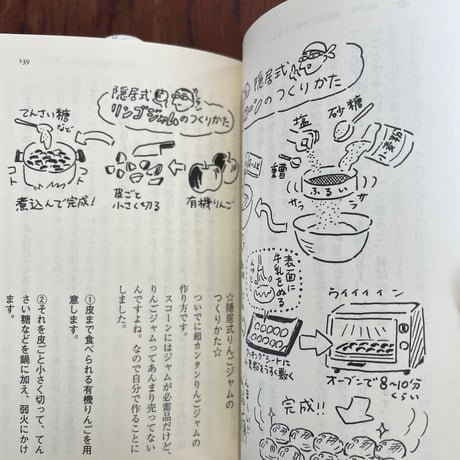 隠居式
スコーンのつくりかた
砂糖
塩
小麦粉
重曹
ふるい
サラ
サラ
表面に
牛乳をぬる
クッキングシートに
小麦粉をうすく敷く
ウイイイイン
オーブンで8〜10分
くらい
完成!!
139
隠居式
リンゴジャムのつくりかた
有機りんご
皮ごと
小さく切る
てんさい糖
など
コト
コト
煮込んで完成!
☆隠居式りんごジャムの
つくりかた☆
ついでに超カンタンりんごジャムの
作り方です。
スコーンにはジャムが必需品だけど、
りんごジャムってあんまり売ってない
んですよね。なので自分で作ることに
しました。
①皮まで食べられる有機りんごを用
意します。
②それを皮ごと小さく切って、てん
さい糖などを鍋に加え、弱火にかけ
ます。